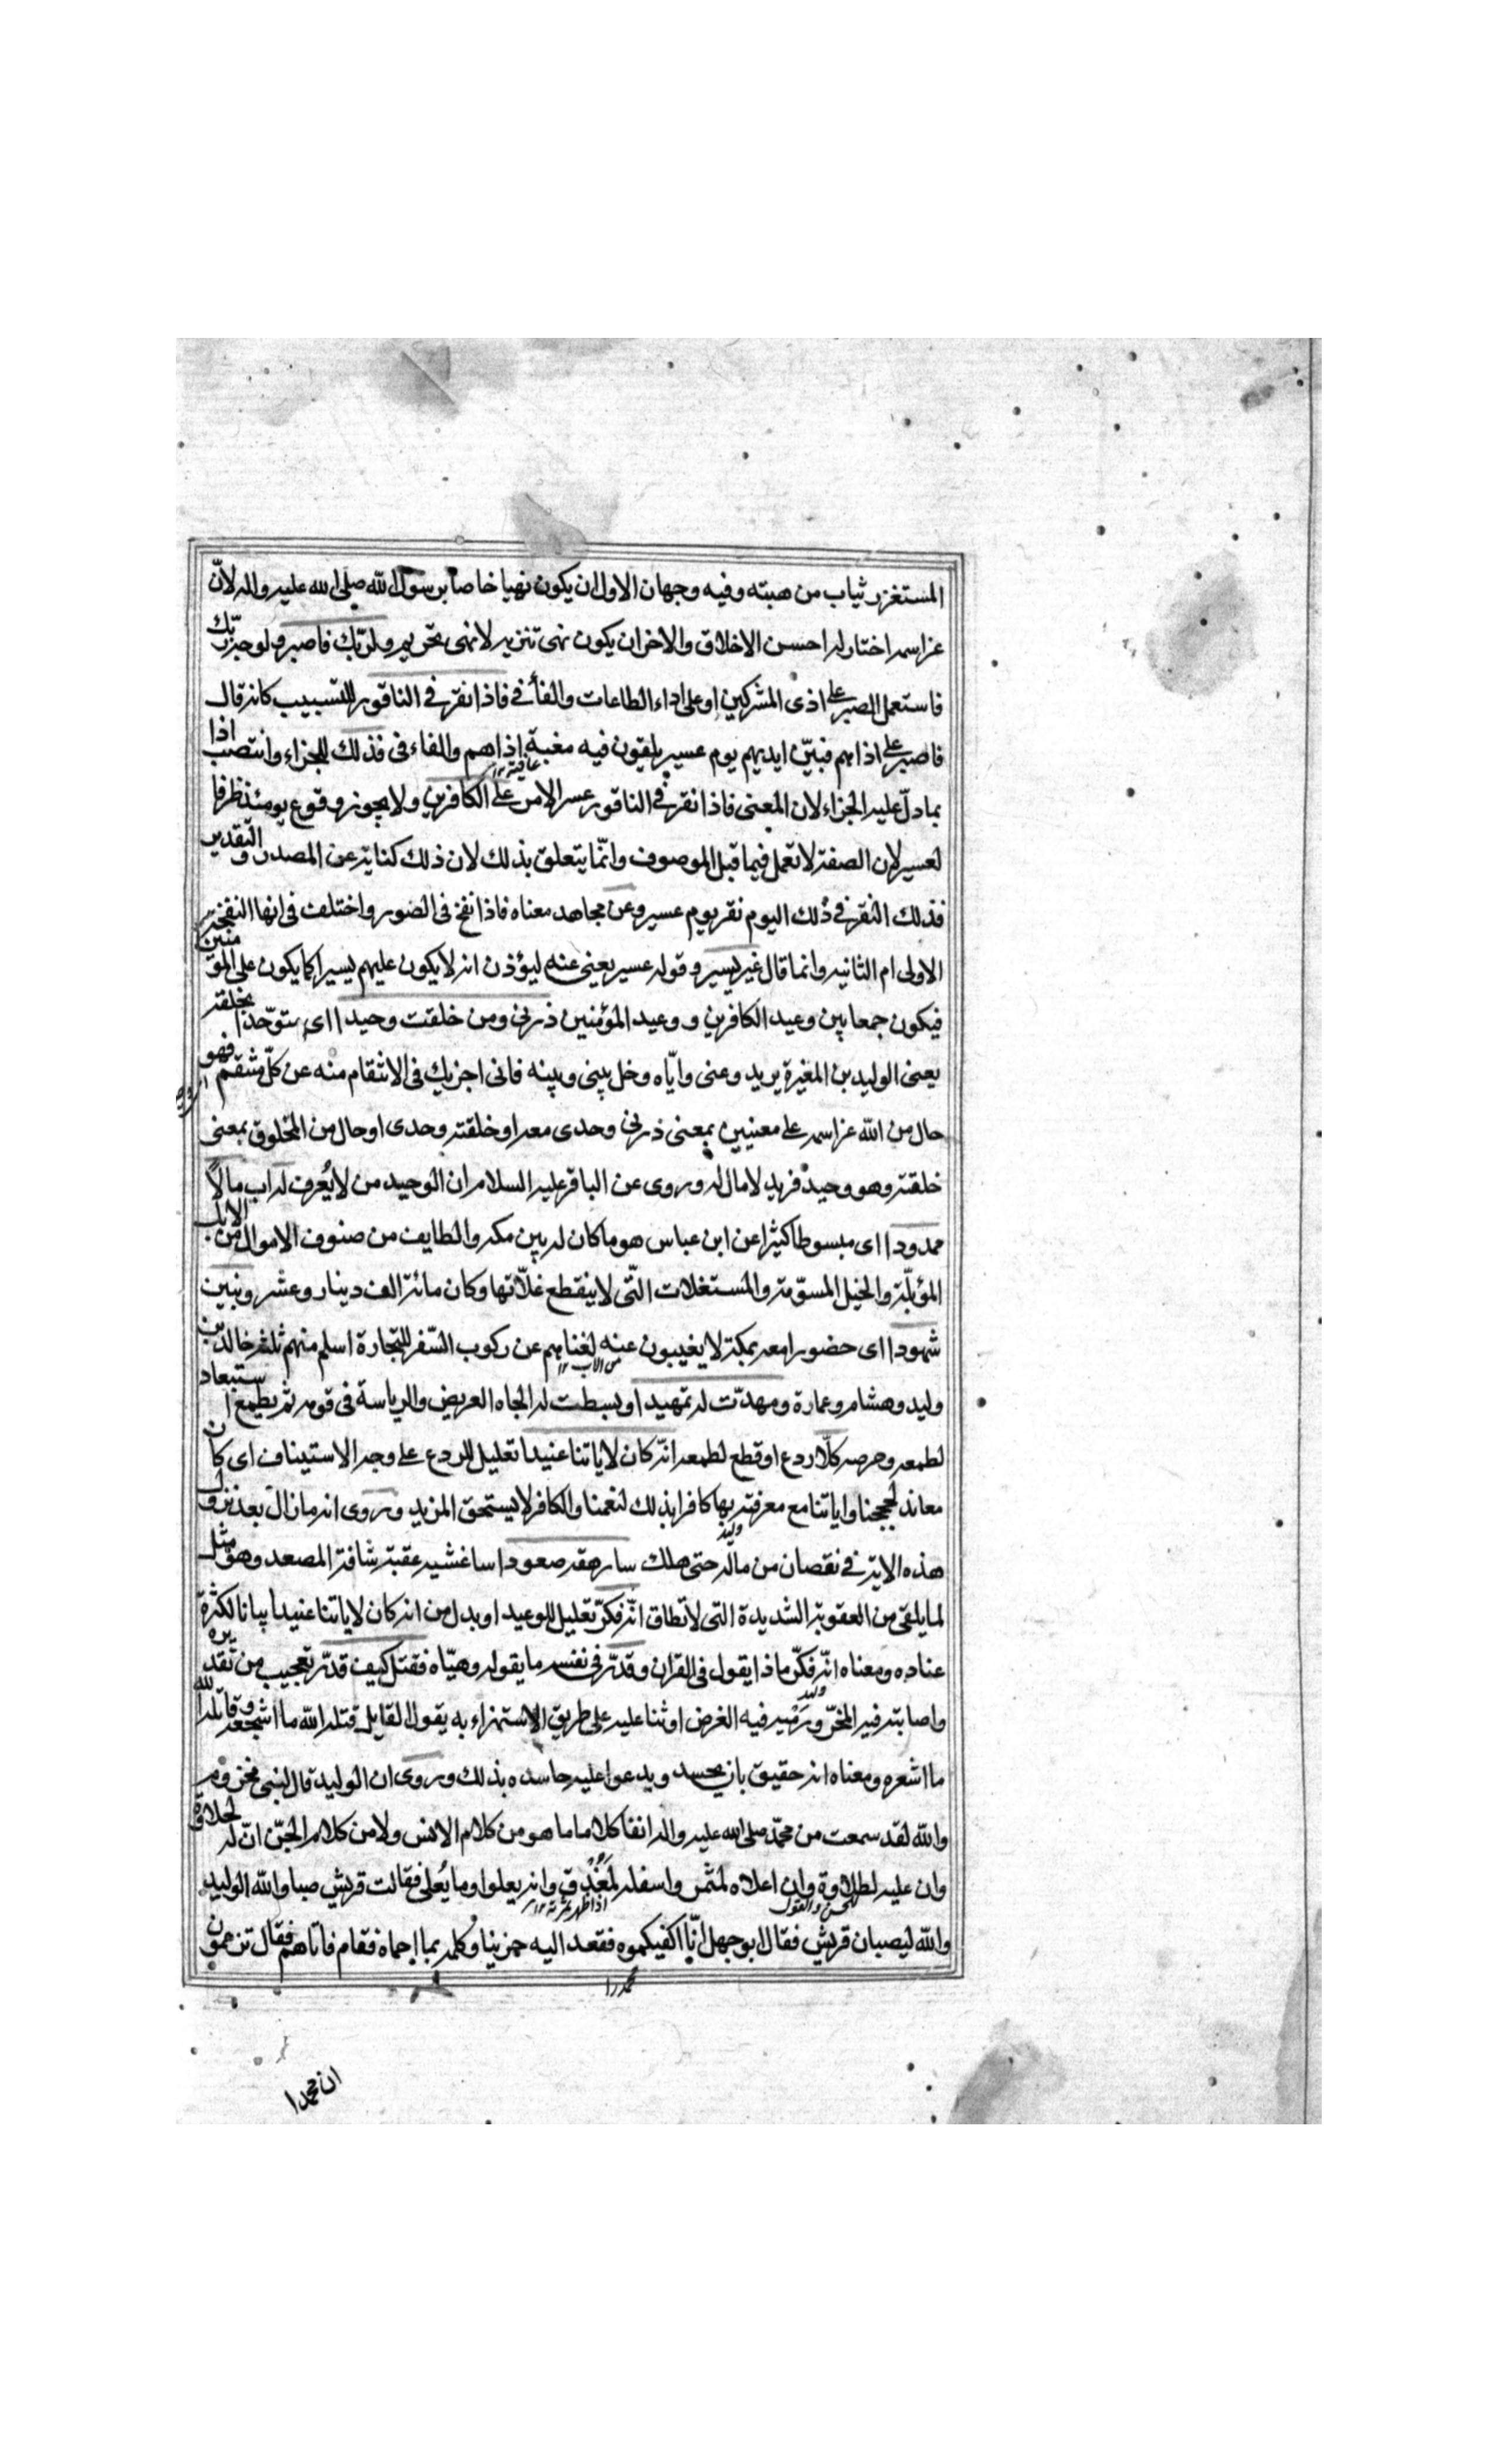 المستغزر ثياب من هبته وفيه وجهان الاول ان يكون نهيا خاصا برسول الله صلى الله عليه واله لانّ
عزاسمه اختار له احسن الاخلاق والاخر ان يكون نهى تنزيه لا نهى تحريم ولربّك فاصبر ولوجه ربّك
فاستعمل الصبر على اذى المشركين او على اداء الطاعات والفاء في فاذا نقر في الناقور للتسبيب كانه قال
فاصبر على اذاهم فبيّن ايديهم يوم عسير يلقون فيه مغبة اذاهم والفاء فى فذلك للجزاء وانتصب اذا
عاقبة ١٢
بما دلّ عليه الجزاء لان المعنى فاذا نقر في الناقور عسر الامر على الكافرين ولا يجوز وقوع يومئذ ظرفا
لعسير لان الصفة لا تعمل فيما قبل الموصوف وانّما يتعلق بذلك لان ذلك كناية عن المصدر والتقدير
فذلك النقر في ذلك اليوم نقر يوم عسير وعن مجاهد معناه فاذا نفخ فى الصور واختلف فى انها النفخة
الاولى ام الثانيه وانما قال غير يسير وقوله عسير يعنى عنه ليؤذن انه لا يكون عليهم يسيرا كما يكون على المؤمنين
فيكون جمعا بين وعيد الكافرين ووعيد المؤمنين ذرنى ومن خلقت وحيدا اى ستوحّدا بخلقته
يعنى الوليد بن المغيرة يريد وعنى وايّاه وخل بينى وبينه فانى اجزيك فى الانتقام منه عن كلّ منتقم فهو
حال من الله عزاسمه على معنيين بمعنى ذرنى وحدى معه او خلقته وحدى او حال من المخلوق بمعنى
خلقته وهو وحيد فريد لا مال له وروى عن الباقر عليه السلام ان الوحيد من لا يُعرف له اب مالاً
ممدودا اى مبسوطا كثيرا عن ابن عباس هو ما كان له بين مكه والطايف من صنوف الاموال من الابل
المؤبلّة والخيل المسوّمة والمستغلات الّتى لا ينقطع غلّاتها وكان مائة الف دينار وعشر وبنين
شهودا اى حضورا معه بمكة لا يغيبون عنه لغناهم عن ركوب السّفر للتجارة اسلم منهم ثلثة خالد بن
من الاب ١٢
وليد وهشام وعمارة ومهدّت له تمهيدا وبسطت له الجاه العريض والرياسة فى قومه ثم يطمع استبعاد
لطمعه وحرصه كلّا ردع او قطع لطمعه انّه كان لاياتنا عنيدا تعليل للردع على وجه الاستيناف اى كان
معاند لحججنا واياتنا مع معرفته بها كافرا بذلك لنعمنا والكافر لا يستحق المزيد وروى انه ما زال بعد نزول
هذه الاية في نقصان من ماله حتى هلك سارهقه صعودا ساغشيه عقبة شاقة المصعد وهو مثل
وليد
لما يلقى من العقوبة الشديدة التى لا تطاق انّه فكّر تعليل للوعيد او بدل من انه كان لاياتنا عنيدا بيانا لكثرة
عناده ومعناه انّه فكّر ما ذا يقول فى القران وقدّر فى نفسه ما يقوله وهيّاه فقتل كيف قدّر تعجيب من تقديره
واصابته فيه المخّر ورميه فيه الغرض او ثنا عليه على طريق الاستهزاء به يقول القايل قتله الله ما اشجعه وقاتله الله
وليد
ما اشعره ومعناه انه حقيق بان يحسد ويدعوا عليه حاسده بذلك وروى ان الوليد قال لبنى مخزوم
والله لقد سمعت من محمّد صلى الله عليه واله انفا كلاما ما هو من كلام الانس ولا من كلام الجنّ انّ له لحلاوة
وان عليه لطلاوة وان اعلاه لمثمر واسفله لمُغدِق وانه يعلوا وما يُعلى فقالت قريش صبا والله الوليد
الحسن والقبول
اذا ظهر ثمرته ١٢
والله ليصبان قريش فقال ابو جهل انّا اكفيكموه فقعد اليه حزينا وكلمه بما احماه فقام فاتاهم فقال تزعمون
محمد را
ان محمدا